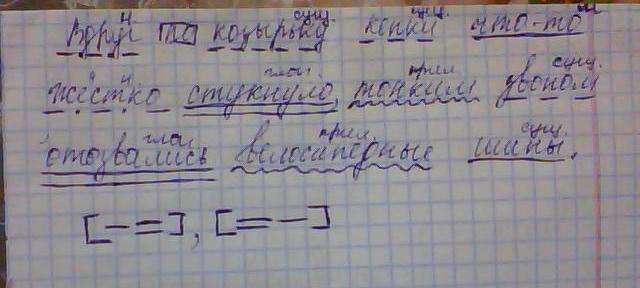 н сущ. сущ. м
Вдруг по козырьку кепки что-то
н глаг прил сущ.
жёстко стукнуло, тонким звоном
глаг прил. сущ.
отозвались велосипедные шины.
[— =], [= —]